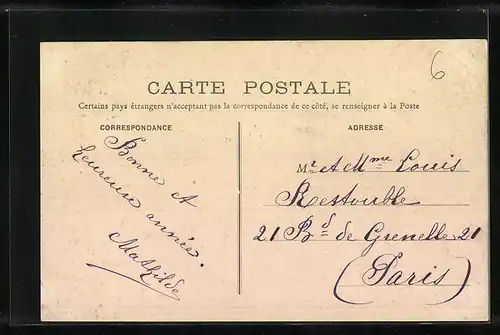 6
CARTE POSTALE
Certains pays étrangers n'acceptant pas la correspondance de ce côté, se renseigner à la Poste
CORRESPONDANCE
Bonne &
heureuse année.
Mathilde
ADRESSE
Mr & Mme Louis
Restouble
21 Bd de Grenelle 21
(Paris)